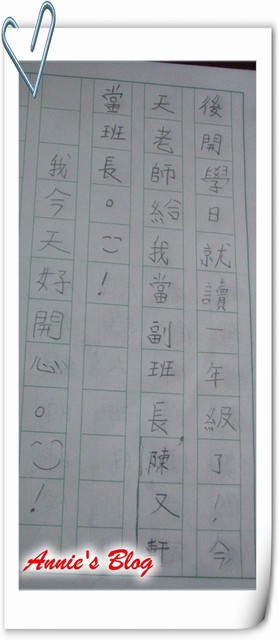 後開學日就讀一年級了！今
天老師給我當副班長，陳又軒
當班長。！
我今天好開心。！
Annie's Blog